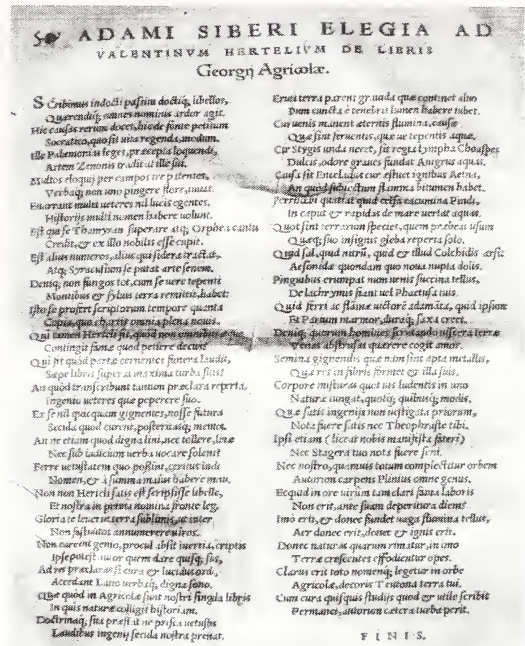 ADAMI SIBERI ELEGIA AD
VALENTINVM HERTELIVM DE LIBRIS
Georgij Agricolæ.
SCribimus indocti passim doctiq; libellos,
Quærendiq; omnes nominis ardor agit.
Hic causas rerum docet, hic de fonte petitum
Socratico, quo sit vita regenda, modum.
Ille Palæmonias leges, præcepta loquendi,
Artem Zenonis tradit at ille sui.
Multos eloquij per campos ire patentes,
Verbaq; non uno pingere flore, iuuat.
Enarrant multi ueteres noctis lucis egentes,
Historijs multi nomen habere uolunt.
Est qui se Thamyran superare atq; Orphea cantu
Credit, & ex illo nobilis esse cupit.
Est alius numeros, alius qui sidera tractat,
Atq; Syracusium se putat arte senem.
Deniq; non fungos tot, cum se uere tepenti
Montibus & syluis terra remittit, habet:
Isto se prostet scriptorum tempore quanta
Copia, quæ chartis omnia plena
Qui tamen Herteli sit, quod non omnibus
Contingit famæ quod petiere decus?
Qui fit quod partæ cernentes funera laudis,
Sæpe libri superat maxima turba suis?
An quod transcribunt tantum præclara reperta,
Ingenio ueteres quæ peperere suo.
Ex se nil quicquam gignentes, nosse futura
Secula quod curent, posteritasq; memor.
An ne etiam quod digna lini, nec tollere, linæ
Nec sub iudicium uerba uocare solent?
Ferre uetustatem quo possint,
Nomen, & à summa maius habere
Non non Herteli satis est scripsisse libellos,
Et nostra in prima nomina fronte leg
Gloria te leuet in terra sublimis,
Non fastuatos annumerere uiros.
Non carent genio, procul absit inertia, scriptis
Ipse potest autor quem dare quisq; suis,
Ad res præclaras si cura & lucidus ordo,
Accedant Latio uerbaq; digna sono.
Quæ quod in Agricolæ sunt nostri singula libris
In quis naturæ colligit historiam,
Doctrinaq; sita præstat ne prisca uetustas
Laudibus ingenij secula nostra premat.
Eruet terra parens grauida quæ continet aluo
Dum cuncta è tenebris lumen habere iubet.
Cur uenis manent æternis flumina, causæ
Quæ sint feruentes, quæ ue tepentis aquæ.
Cur Stygis unda necet, sit regia lympha Choaspes
Dulcis, odore graues fundat Anigrus aquas.
Causa sit Enceladus cur eiectet ignibus Aetna,
An quod subiectum flamma bitumen habet.
Perrhæbi quatiat quid celsa cacumina Pindi,
In caput & rapidas de mare uertat aquas.
Quot sint terrarum species, quem præbeat usum
Quæq; suo insignis gleba reperta solo.
Quid sal, quid nitrū, quid & illud Colchidis arsit
Aesonidæ quondam quo noua nupta dolis.
Pinguibus erumpat num uenis succina tellus,
De lachrymis fiant uel Phaetusa tuis.
Quid ferri ac flammæ uictore adamāta, quid ipsum
Et Parium marmor, duraq; saxa creet.
Deniq; quorum homines scrutando uiscera terræ
Venas abstrusas quærere cogit amor.
Semina gignendis quæ nam sint apta metallis,
Quæ res in fibris formet & illa suis.
Corpore misturas quot uis ludentis in uno
Naturæ iungat, quotiq; quibusq; modis.
Quæ satis ingenijs non uestigata priorum,
Nota fuere satis nec Theophraste tibi.
Ipsi etiam (liceat nobis manifesta fateri)
Nec Stagera tuo nota fuere seni.
Nec nostro, quamuis totum complectitur orbem
Autorum carpens Plinius omne genus.
Ecquid in ore uirûm tam clari fama laboris
Non erit, ante suam deperitura diem?
Imò erit, & donec fundet uaga flumina tellus,
Aer donec erit, donec & ignis erit.
Donec naturas quarum rimatur, in imo
Terræ crescentes effodientur opes.
Clarus erit toto nomenq; legetur in orbe
Agricolæ, decoris Teutona terra tui.
Cum cura quisquis studijs quod & utile scribit
Permanet, autorum cætera turba perit.
FINIS.